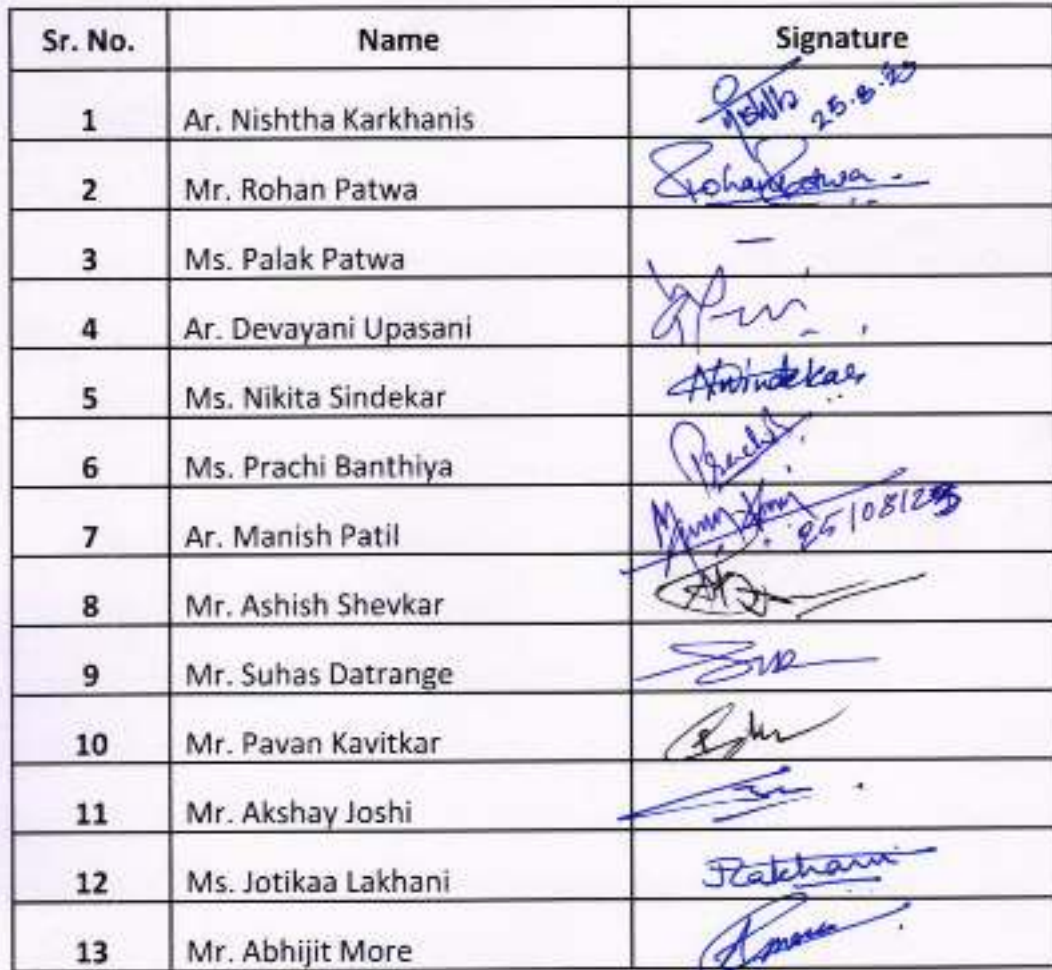 Sr. No. Name Signature
1 Ar. Nishtha Karkhanis
25.8.25
2 Mr. Rohan Patwa Rohan Patwa
3 Ms. Palak Patwa —
4 Ar. Devayani Upasani
5 Ms. Nikita Sindekar
6 Ms. Prachi Banthiya Prachi
7 Ar. Manish Patil
8 Mr. Ashish Shevkar
9 Mr. Suhas Datrange
10 Mr. Pavan Kavitkar
11 Mr. Akshay Joshi
12 Ms. Jotikaa Lakhani
13 Mr. Abhijit More